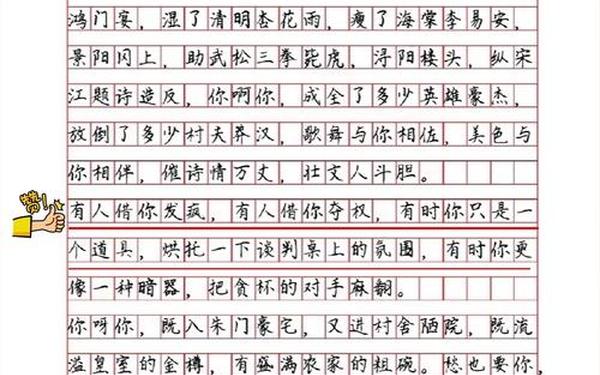 鸿门宴，湿了清明杏花雨，瘦了海棠李易安，
景阳冈上，助武松三拳毙虎，浔阳楼头，纵宋
江题诗造反，你啊你，成全了多少英雄豪杰，
放倒了多少村夫莽汉，歌舞与你相佐，美色与
你相伴，催诗情万丈，壮文人斗胆。
赞！
有人借你发疯，有人借你夺权，有时你只是一
个道具，烘托一下谈判桌上的氛围，有时你更
像一种暗器，把贪杯的对手麻翻。
你呀你，既入朱门豪宅，又进村舍陋院，既流
溢皇室的金樽，有盛满农家的粗碗。愁也要你，